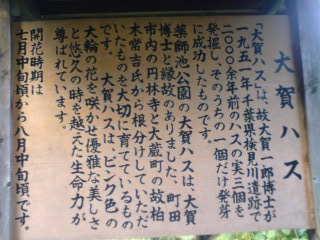 大賀ハス
「大賀ハス」は、故大賀一郎博士が
一九五一年千葉県検見川遺跡で
二〇〇〇年前のハスの実三個を
発掘し、そのうちの一個だけ発芽
に成功したものです。
薬師池公園の大賀ハスは、大賀
博士と縁故のありました、町田
市内の円林寺と大蔵町の故柏
木常吉氏から根分けしていただ
いたものを大切に育てているもの
です。大賀ハスは、ピンク色の
大輪の花を咲かせ優雅な美しさ
と悠久の時を越えた生命力が
尊ばれています。
開花時期は
七月中旬頃から八月中旬頃です。